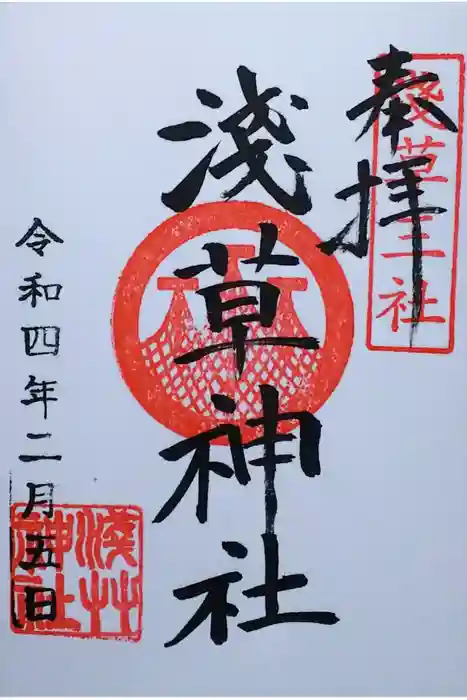 奉拝
淺草三社
淺草神社
令和四年二月五日
淺艸
神社